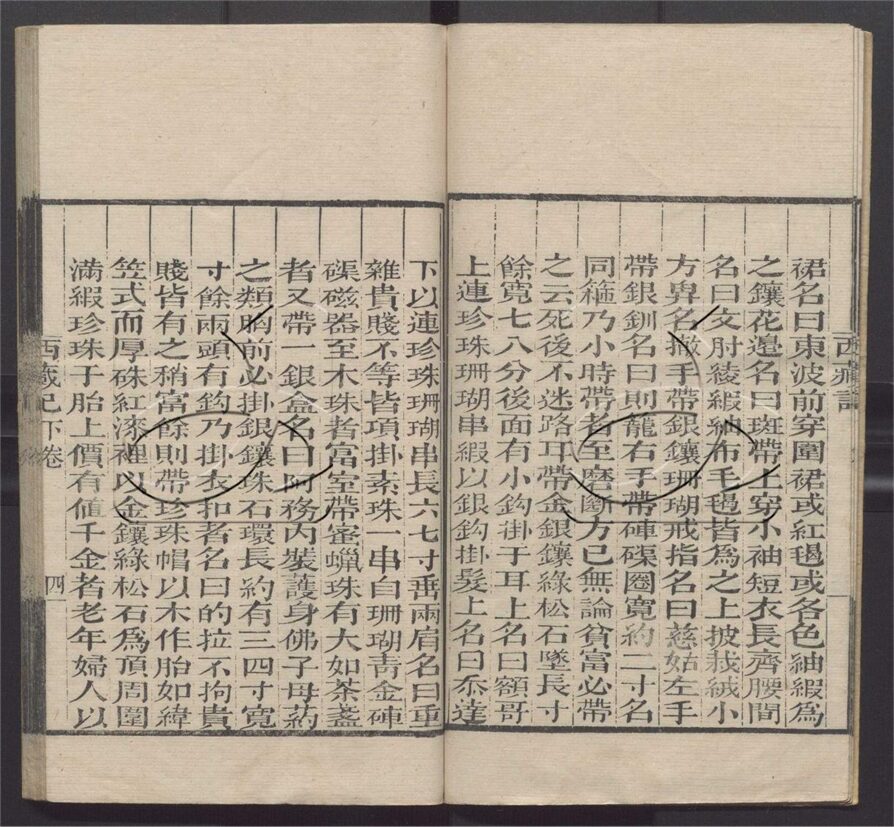 裙名曰東波前穿圍裙或紅氆或各色紬緞為
之鑲花邊名曰班帶上穿小袖短衣長齊腰間
名曰文肘綾緞紬布毛氆皆為之上披栽絨小
方單名撒手帶銀鑲珊瑚戒指名曰慈姑左手
帶銀釧名曰則籠右手帶硨磲圈寬約二寸名
同箍乃小時帶者至磨斷方已無論貧富必帶
之云死後不迷路耳帶金銀鑲綠松石墜長寸
餘寬七八分後面有小鈎掛于耳上名曰額哥
上連珍珠珊瑚串緞以銀鈎掛髮上名曰忝達
下以連珍珠珊瑚串長六七寸垂兩肩名曰重
雜貴賤不等皆項掛素珠一串自珊瑚青金硨
磲磁器至木珠者富室帶蜜蠟珠有大如茶盞
者又帶一銀盒名曰阿務內裝護身佛子母药
之類胸前必掛銀鑲珠石環長約有三四寸寬
寸餘兩頭有鈎乃掛衣扣者名曰的拉不拘貴
賤皆有之稍富餘則帶珍珠帽以木作胎如緯
笠式而厚硃紅漆裡以金鑲綠松石為頂周圍
滿緞珍珠于胎上價有值千金者老年婦人以
西藏記下卷
四